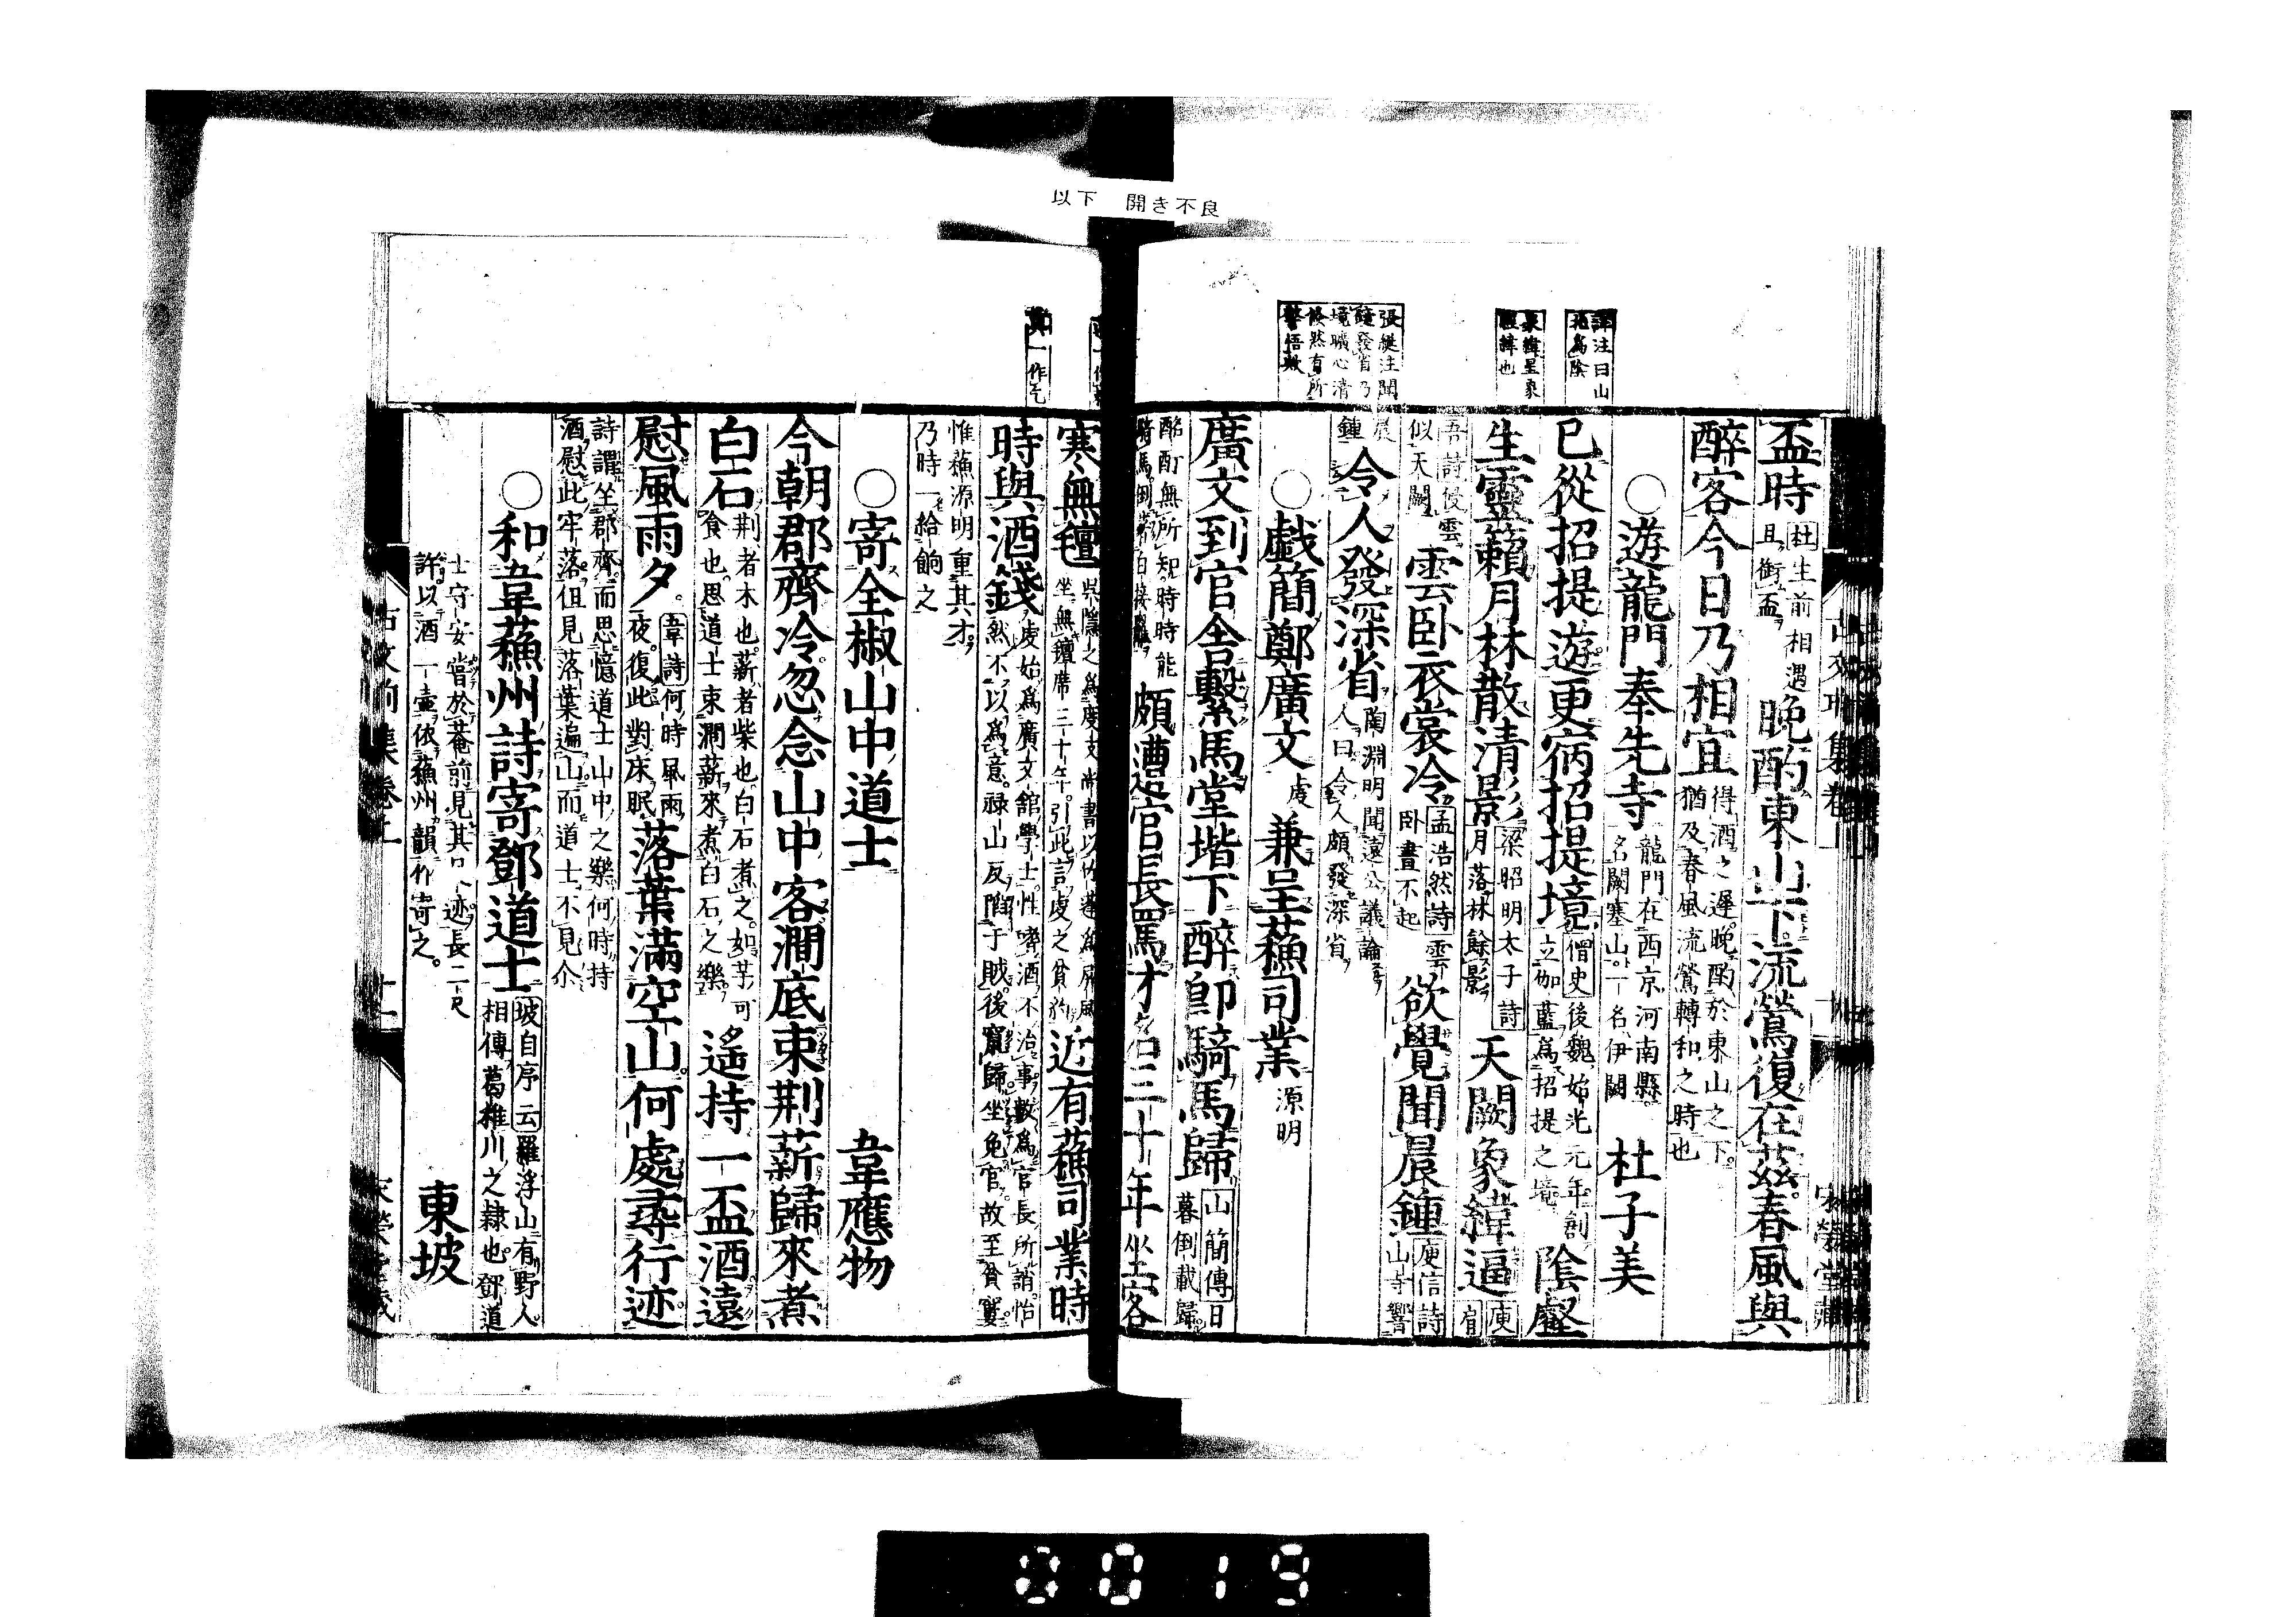 以下 開き不良
譯注曰山
北爲陰
象緯星象
經緯也
張綖注聞
鐘發省乃
境曠心清
倏然有所
警悟歟
盃時 杜生前相遇且銜盃 晚酌東山下流鶯復在茲春風與
醉客今日乃相宜 得酒之遲晚酌於東山之下猶及春風流鶯轉和之時也
○遊龍門奉先寺 龍門在西京河南縣名闕塞山一名伊闕 杜子美
已從招提遊更宿招提境 僧史後魏始光元年創立伽藍爲招提之境 陰壑
生靈籟月林散清影 梁昭明太子詩月落林餘影 天闕象緯逼 庾肩
吾詩侵雲似天闕 雲臥衣裳冷 孟浩然詩雲臥晝不起 欲覺聞晨鍾 庾信詩山寺響
晨鍾 令人發深省 陶淵明聞遠公議論人曰令人頗發深省
○戲簡鄭廣文 虔 兼呈蘓司業 源明
廣文到官舍繫馬堂堦下醉卽騎馬歸 山簡傳日暮倒載歸
酩酊無所知時時能騎馬倒著白接䍦 頗遭官長罵才名三十年坐客
一作乞
寒無氊 吳隱之爲度支尚書以竹蓬爲屛風坐無氊席三十年引此言虔之貧約 近有蘓司業時
時與酒錢 虔始爲廣文館學士性嗜酒不治事數爲官長所誚怡然不以爲意祿山反陷于賊後竄歸坐免官故至貧窶
惟蘓源明重其才乃時一給餉之
○寄全椒山中道士 韋應物
今朝郡齋冷忽念山中客澗底束荆薪歸來煮
白石 荆者木也薪者柴也白石者煮之如芋可食也思道士東澗薪來煮白石之樂 遙持一盃酒遠
慰風雨夕 韋詩何時風雨夜復此對床眠 落葉滿空山何處尋行迹
詩謂坐郡齋而思憶道士山中之樂何時持酒慰此牢落但見落葉遍山而道士不見尒
○和韋蘓州詩寄鄧道士 坡自序云羅浮山有野人相傳葛稚川之隷也鄧道
士守安嘗於菴前見其 迹長二尺許以酒一壺依蘓州韻作寄之 東坡
古文前集卷上
0019